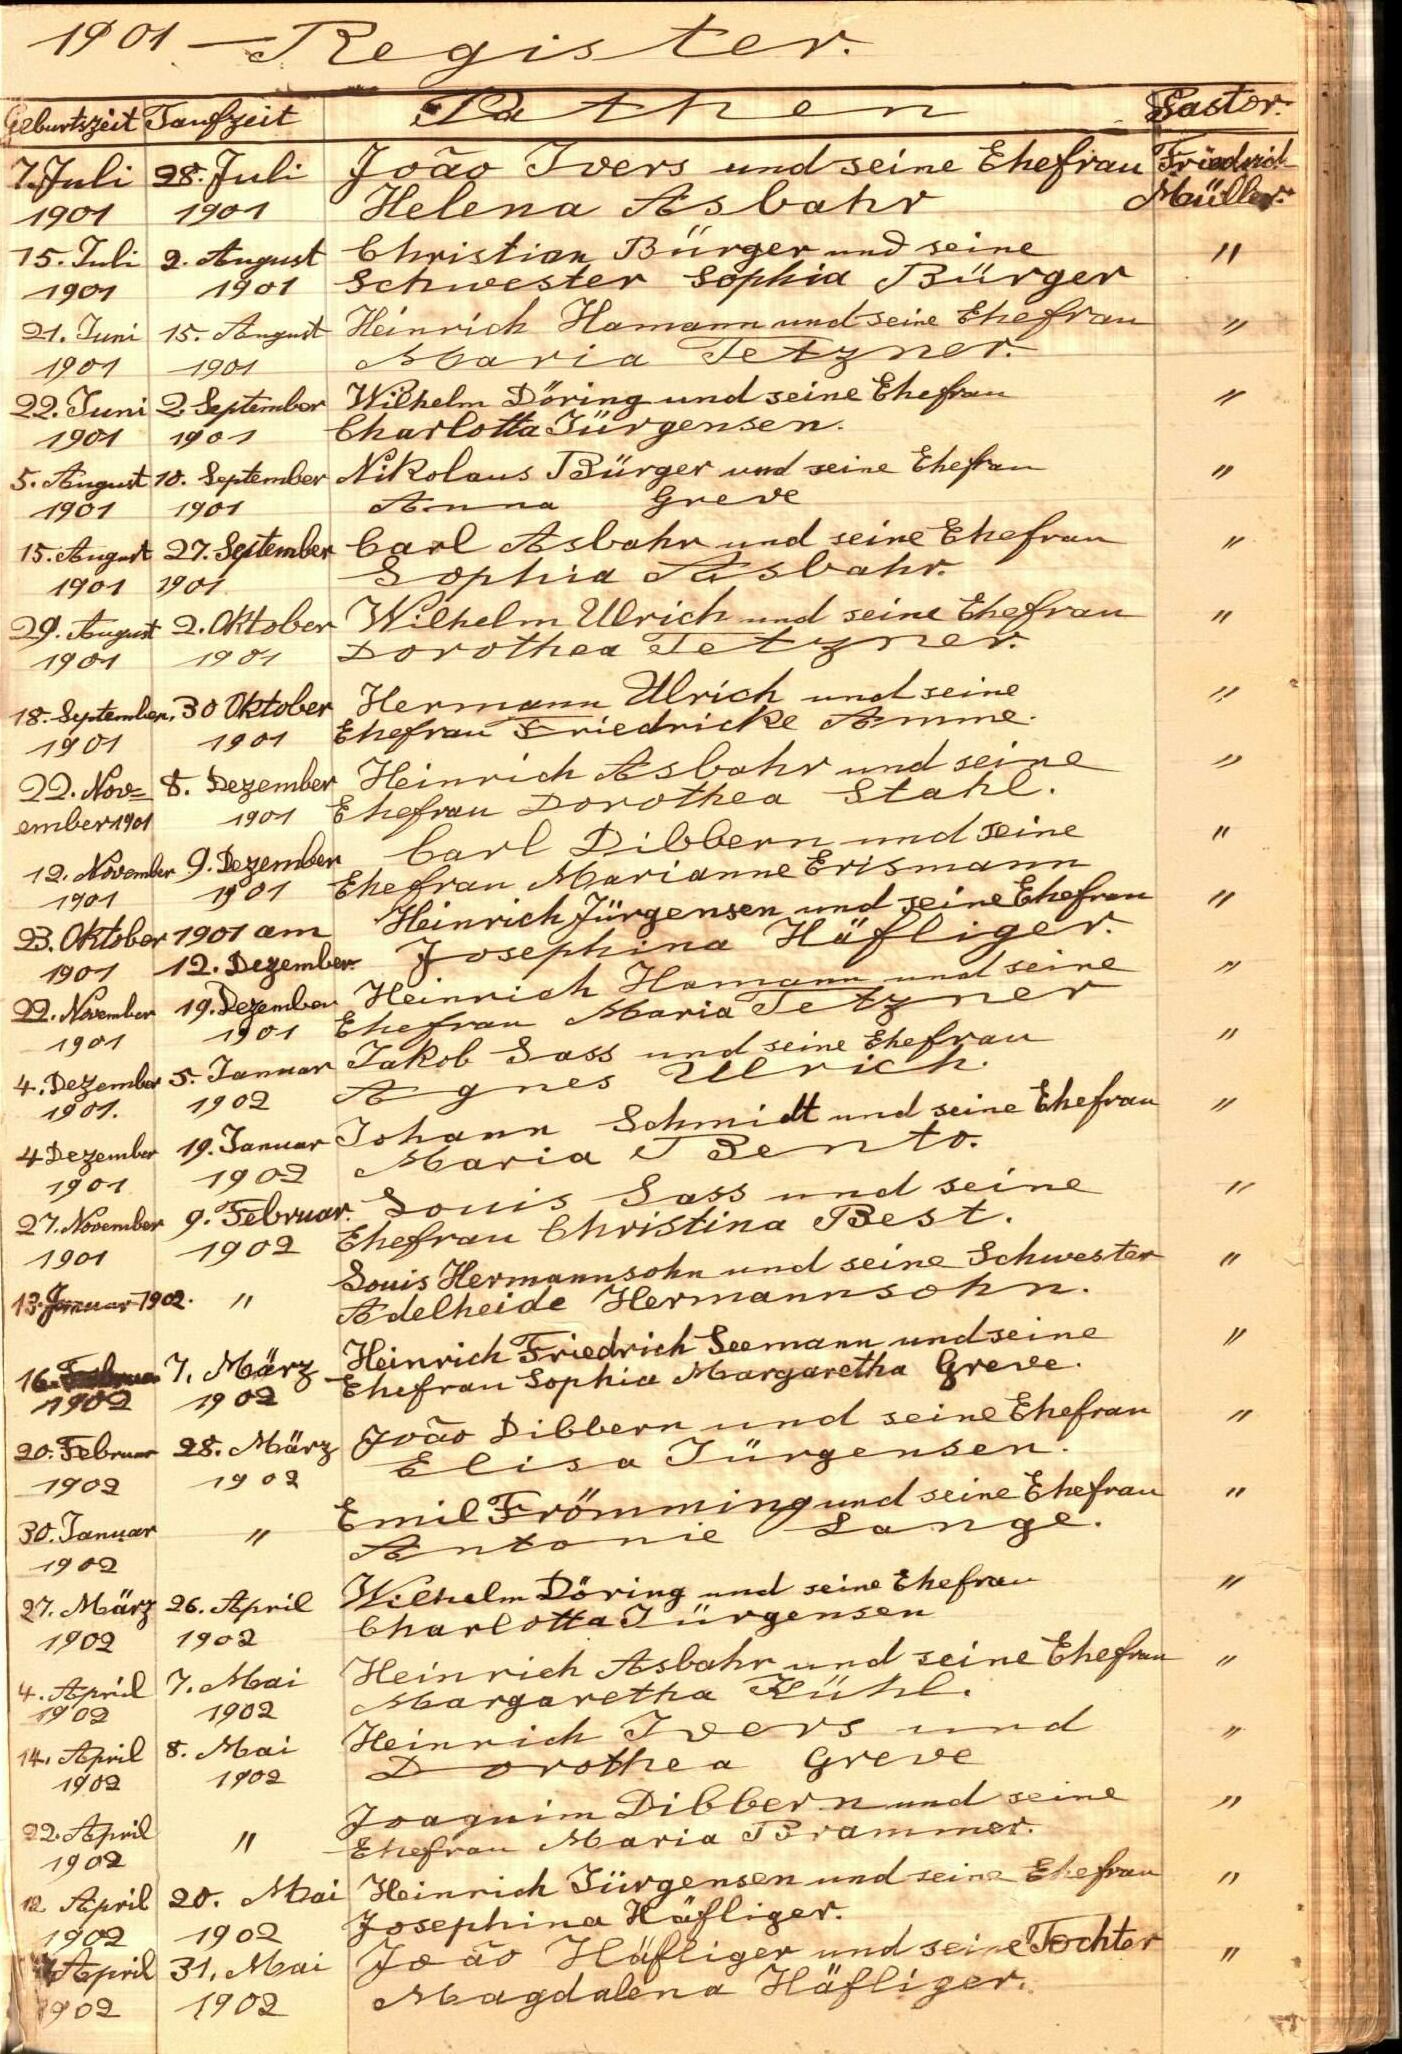 1901 — Register.
Geburtszeit Taufzeit Pathen Pastor.
7. Juli 28. Juli João Ivers und seine Ehefrau Friedrich
1901 1901 Helena Asbahr Müller.
15. Juli 2. August Christian Bürger und seine "
1901 1901 Schwester Sophia Bürger
21. Juni 15. August Heinrich Hamann und seine Ehefrau "
1901 1901 Maria Tetzner.
22. Juni 2. September Wilhelm Döring und seine Ehefrau "
1901 1901 Charlotta Jürgensen.
5. August 10. September Nikolaus Bürger und seine Ehefrau "
1901 1901 Anna Greve
15. August 27. September Carl Asbahr und seine Ehefrau "
1901 1901 Sophia Asbahr.
29. August 2. Oktober Wilhelm Ulrich und seine Ehefrau "
1901 1901 Dorothea Tetzner.
18. September, 30 Oktober Hermann Ulrich und seine "
1901 1901 Ehefrau Friedricke Amme.
22. Nov= 8. Dezember Heinrich Asbahr und seine "
ember 1901 1901 Ehefrau Dorothea Stahl.
12. November 9. Dezember Carl Dibbern und seine "
1901 1901 Ehefrau Marianne Erismann
23. Oktober 1901 am Heinrich Jürgensen und seine Ehefrau "
1901 12. Dezember. Josephina Häfliger.
22. November 19. Dezember Heinrich Hamann und seine "
1901 1901 Ehefrau Maria Tetzner
4. Dezember 5. Januar Jakob Sass und seine Ehefrau "
1901. 1902 Agnes Ulrich.
4 Dezember 19. Januar Johann Schmidt und seine Ehefrau "
1901 1902 Maria Bento.
27. November 9. Februar. Louis Sass und seine "
1901 1902 Ehefrau Christina Best.
13. Januar 1902. " Louis Hermannsohn und seine Schwester "
Adelheide Hermannsohn.
16. Februar 7. März Heinrich Friedrich Seemann und seine "
1902 1902 Ehefrau Sophia Margaretha Greve.
20. Februar 28. März João Dibbern und seine Ehefrau "
1902 1902 Elisa Jürgensen.
30. Januar " Emil Frömming und seine Ehefrau "
1902 Antonie Lange.
27. März 26. April Wilhelm Döring und seine Ehefrau "
1902 1902 Charlotta Jürgensen
4. April 7. Mai Heinrich Asbahr und seine Ehefrau "
1902 1902 Margaretha Kühl.
14. April 8. Mai Heinrich Ivers und "
1902 1902 Dorothea Greve
22. April " Joaquim Dibbern und seine "
1902 Ehefrau Maria Brammer.
12 April 20. Mai Heinrich Jürgensen und seine Ehefrau "
1902 1902 Josephina Häfliger.
April 31. Mai João Häfliger und seine Tochter "
1902 1902 Magdalena Häfliger.